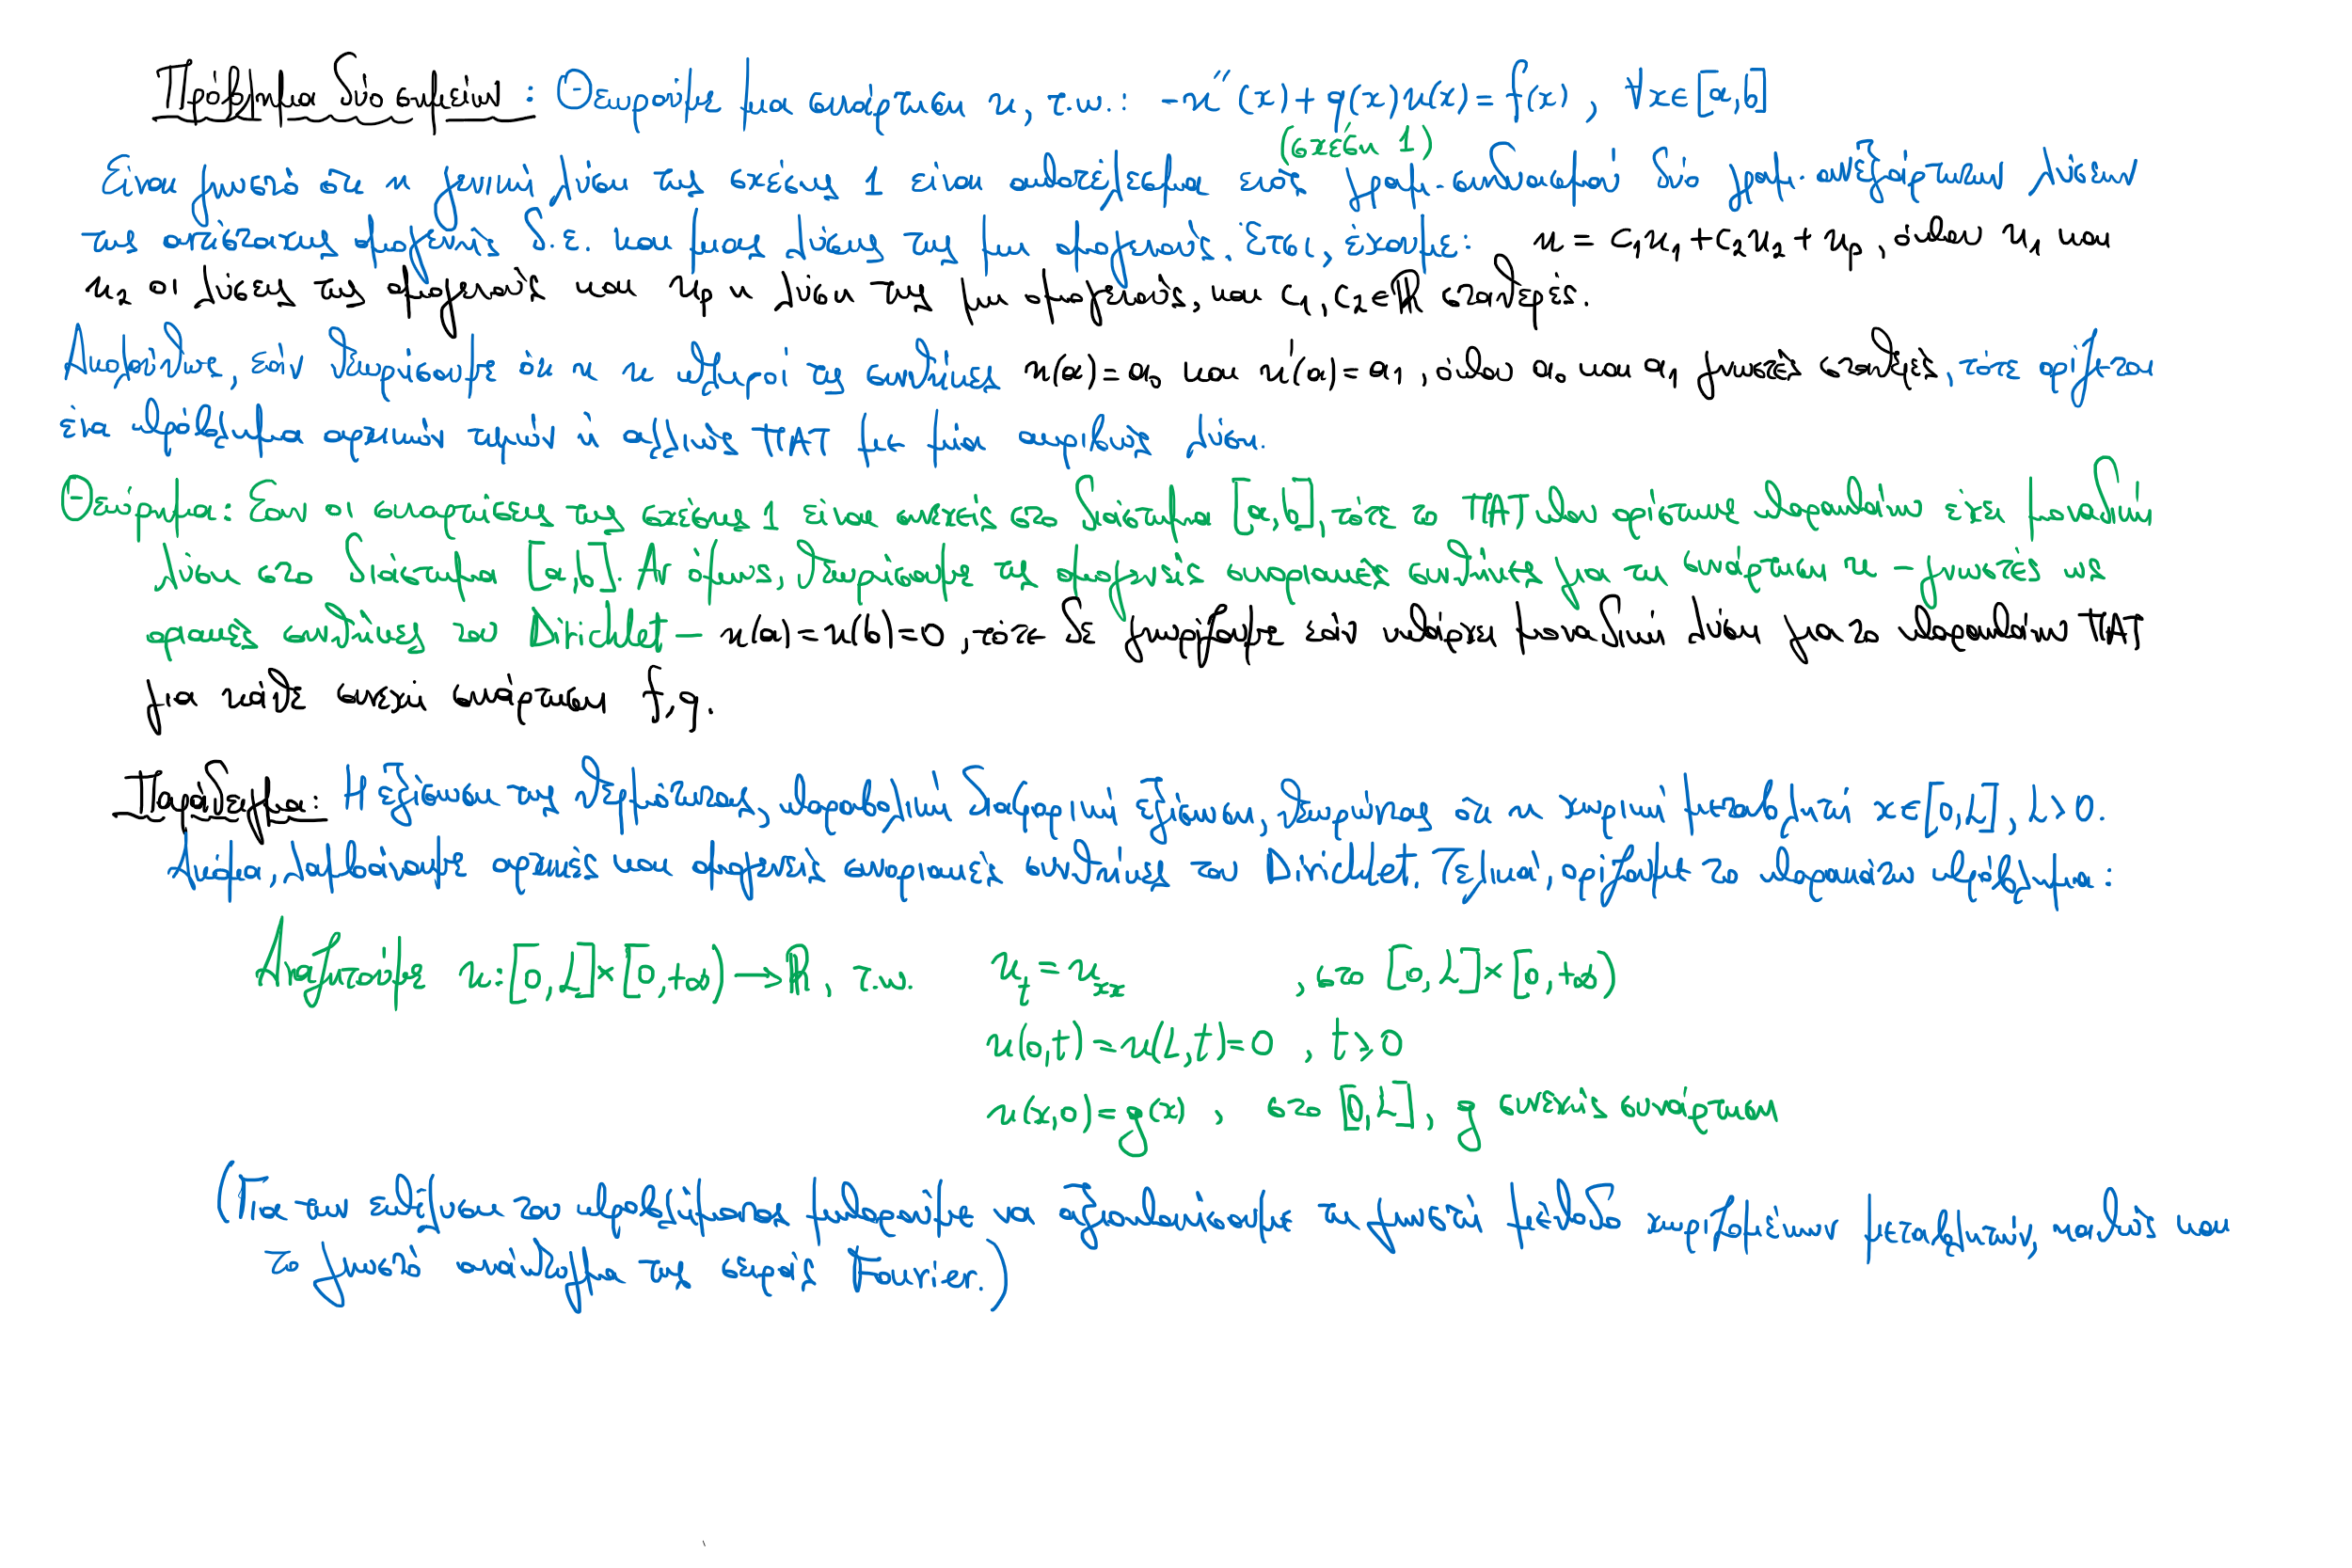 Πρόβλημα δύο σημείων: Θεωρούμε μια συνάρτηση u, τ.ω.: -u''(x)+q(x)u(x)=f(x), ∀x∈[a,b]
(σχέση 1)
Είναι γνωστό ότι η γενική λύση της σχέσης 1 είναι αποτέλεσμα ενός γραμ. συνδυασμού δύο γραμ. ανεξάρτητων λύσεων
της αντίστοιχης ομογενής δ.ε. και μιας λύσης της μη ομογενούς. Έτσι, έχουμε: u = c₁u₁+c₂u₂+u_p, όπου u₁ και
u₂ οι λύσεις της ομογενούς και u_p η λύση της μη ομογενούς, και c₁, c₂∈ℝ σταθερές.
Ακολούθως, εάν θεωρήσουμε ότι η u πληροί τις συνθήκες u(a)=a₀ και u'(a)=a₁, όπου a₀ και a₁ γνωστές σταθερές, τότε ορίζεται
ένα πρόβλημα αρχικών τιμών ή αλλιώς ΠΑΤ με μία ακριβώς λύση.
Θεώρημα: Εαν οι συναρτήσεις της σχέσης 1 είναι συνεχείς στο διάστημα [a,b], τότε το ΠΑΤ που ορίστηκε παραπάνω έχει μοναδική
λύση στο διάστημα [a,b]. Αν όμως, θεωρήσουμε τις ομογενείς συνοριακές συνθήκες για τη συνάρτηση u - γνωστές ως
οριακές συνθήκες του Dirichlet - u(a)=u(b)=0, τότε δε γνωρίζουμε εάν υπάρχει μοναδική λύση για το παραπάνω ΠΑΤ
για κάθε συνεχή συνάρτηση f,q.
Παράδειγμα: Η εξίσωση της θερμότητας, παραβολική διαφορική εξίσωση, θεωρώντας ότι η χωρική μεταβλητή x∈[0,L], L>0.
Ακόμα, λαμβάνουμε αρχικές και ομογενείς συνοριακές συνθήκες του Dirichlet. Τελικά, ορίζουμε το παρακάτω πρόβλημα:
Αναζητούμε u:[0,L]×[0,+∞)→ℝ, τ.ω. u_t = u_xx , στο [0,L]×[0,+∞)
u(0,t)=u(L,t)=0 , t⩾0
u(x,0)=g(x) , στο [0,L], g συνεχής συνάρτηση
(Για την επίλυση του προβλήματος μπορούμε να αξιοποιήσουμε τη γνωστή μέθοδο χωριζομένων μεταβλητών, καθώς και
το γνωστό ανάπτυγμα της σειράς Fourier.)